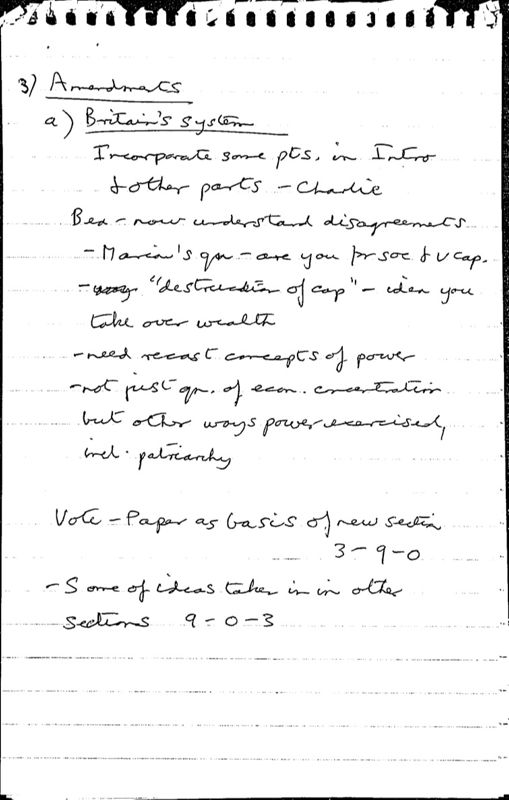 3) Amendments
a) Britain's system
Incorporate some pts. in Intro
& other parts - Charlie
Bea - now understand disagreements
- Maria's qn - are you for soc & v cap.
- "destruction of cap" - idea you
take over wealth
- need recast concepts of power
- not just qn. of econ. concentration
but other ways power exercised,
incl. patriarchy
Vote - Paper as basis of new section
3 - 9 - 0
- Some of ideas taken in in other
sections 9 - 0 - 3